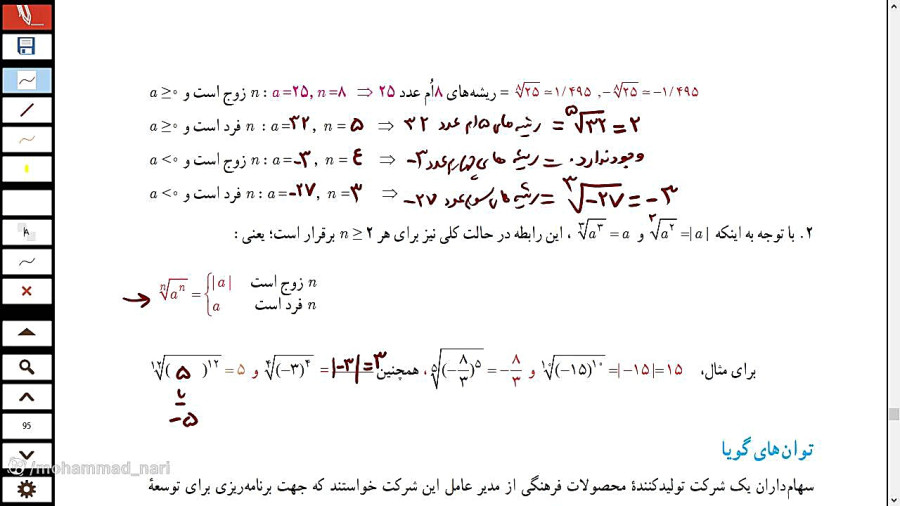 n زوج است و a ≥ ۰ : a = ۲۵, n = ۸ ⇒ ریشه‌های ۸اُم عدد ۲۵ = ⁸√۲۵ ≃ ۱/۴۹۵ , −⁸√۲۵ ≃ −۱/۴۹۵
n فرد است و a ≥ ۰ : a = ۳۲, n = ۵ ⇒ ریشه های ۵ام عدد ۳۲ = ⁵√۳۲ = ۲
n زوج است و a < ۰ : a = −۳, n = ۴ ⇒ ریشه های چهارم عدد −۳ = وجود ندارد.
n فرد است و a < ۰ : a = −۲۷, n = ۳ ⇒ ریشه های سوم عدد −۲۷ = ³√−۲۷ = −۳
۲. با توجه به اینکه ²√a² = |a| و ³√a³ = a ، این رابطه در حالت کلی نیز برای هر n ≥ ۲ برقرار است؛ یعنی :
ⁿ√aⁿ = { |a| n زوج است
a n فرد است
برای مثال، ¹⁰√(−۱۵)¹⁰ = |−۱۵| = ۱۵ و ⁵√(−۸/۳)⁵ = −۸/۳ ، همچنین ⁴√(−۳)⁴ = |−۳| = ۳ و ¹²√( ۵ )¹² = ۵
یا
−۵
توان‌های گویا
سهام‌داران یک شرکت تولیدکنندهٔ محصولات فرهنگی از مدیر عامل این شرکت خواستند که جهت برنامه‌ریزی برای توسعهٔ
A
95
/mohammad_nari